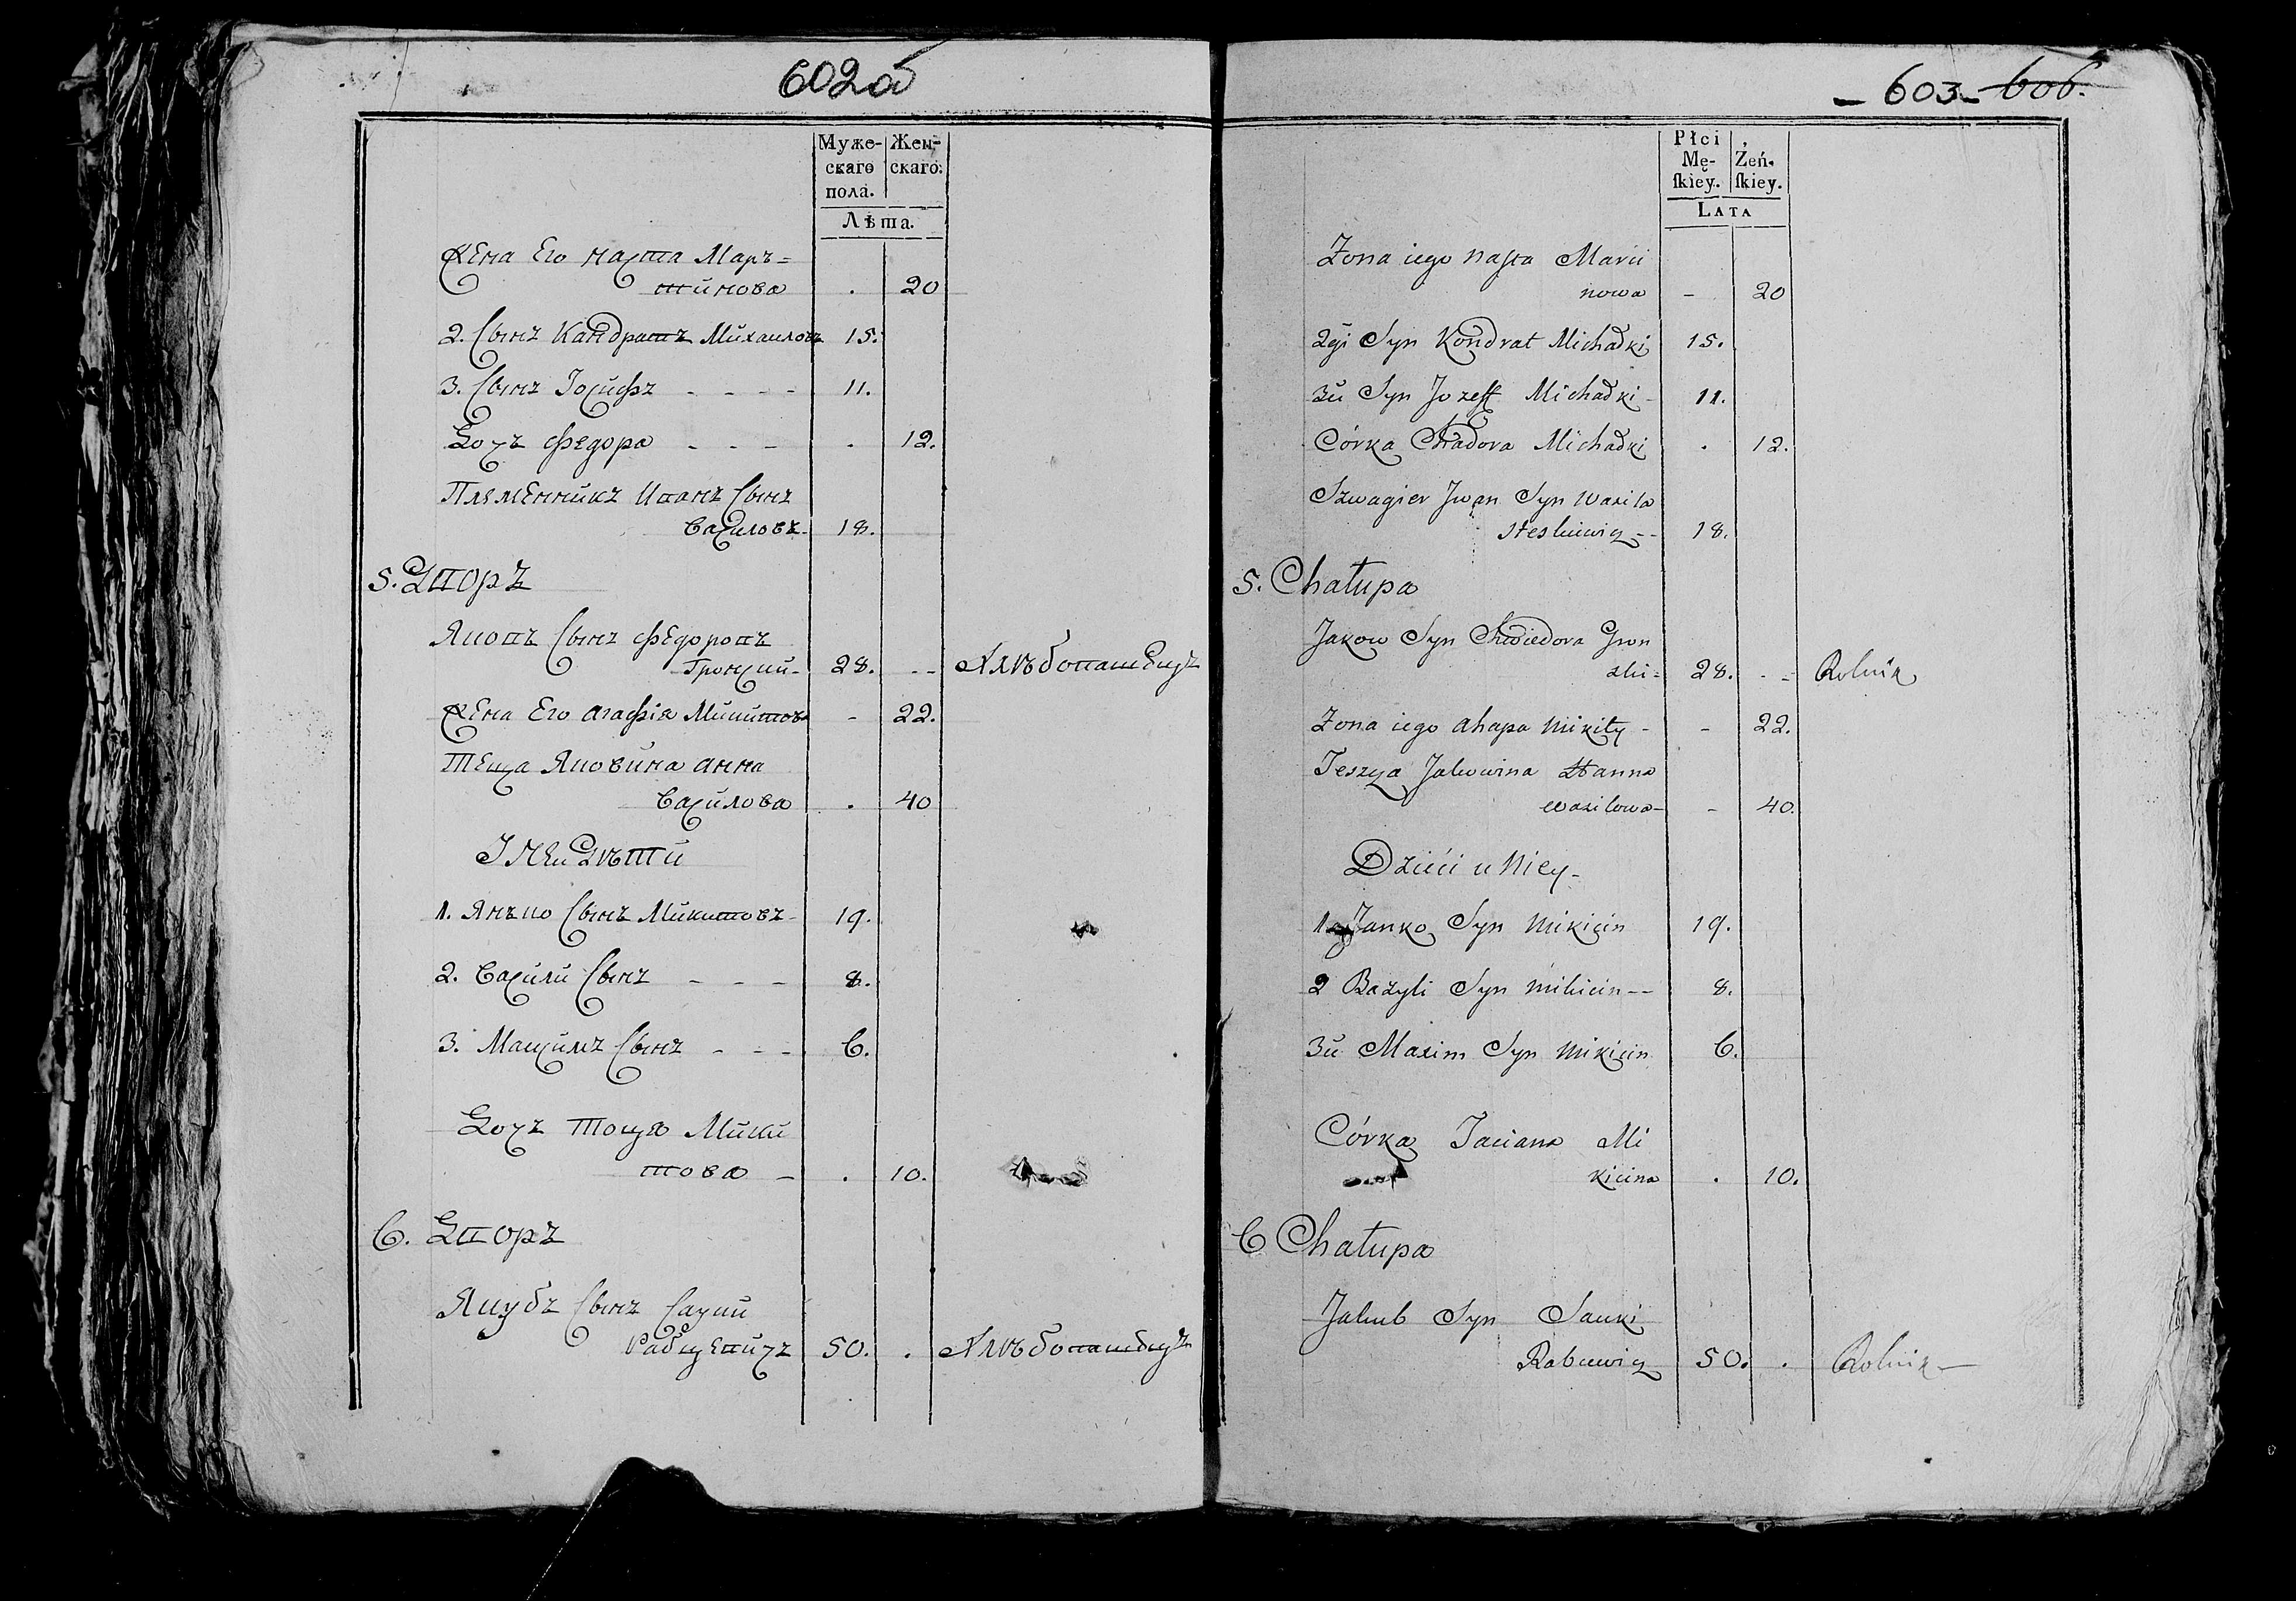 602 об
Муже-
скаго
пола.
Жен-
скаго.
Лѣта.
Жена Его Наста Маръ=
тинова . 20
2. Сынъ Кандратъ Михаиловъ 15.
3. Сынъ Іосифъ - - - - 11.
Дочъ Федора - - - . 12.
Племенникъ Иванъ Сынъ
Василовъ - 18.
5. Дворъ
Яковъ Сынъ Федоровъ
Гронский - 28. - - Хлѣбопашецъ
Жена Его Агафія Микитова - 22.
Теща Яковина Анна
Василова . 40
У Ней Дѣти
1. Янъко Сынъ Микитовъ - 19.
2. Васили Сынъ - - - 8.
3. Мацимъ Сынъ - - - 6.
Дочъ Тоця Мики
това - . 10.
6. Дворъ
Якубъ Сынъ Сауки
Рабцевичъ 50. . Хлѣбопашецъ
- 603 - 606.
Płci
Mę-
ſkiey.
Żeń-
ſkiey.
LATA
Zona iego Nasta Marci
nowa - 20
2gi Syn Kondrat Michałki 15.
3ci Syn Jozeff Michałki - 11.
Córka Chwadora Michałki . 12.
Szwagier Jwan Syn Wasila
18.
5. Chałupa
Jakow Syn Chwiedora Gron
ski = 28. - - Rolnik
Zona iego Ahapa Mikity - - 22.
Teszcza Jakowina Hanna
Wasilowa - - 40.
Dzieci u Niey -
1szy Janko Syn Mikicin 19.
2 Bazyli Syn Mikicin -- 8.
3ci Maxim Syn Mikicin 6.
Córka Taciana Mi
kicina . 10.
6 Chałupa
Jakub Syn Sauki
Rabcewicz 50. . Rolnik -